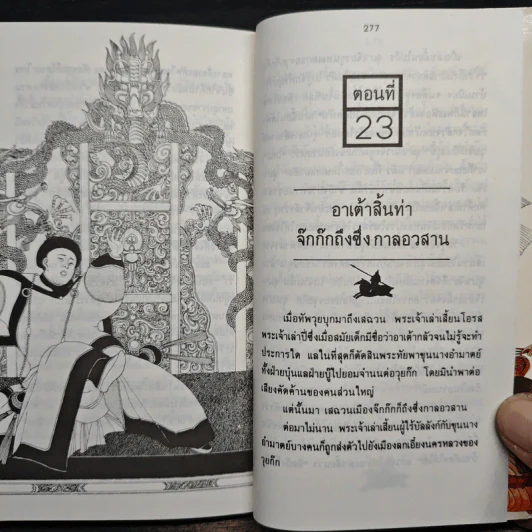 277
ตอนที่
23
อาเต้าสิ้นท่า
จ๊กก๊กถึงซึ่ง กาลอวสาน
เมื่อทัพวุยบุกมาถึงเสฉวน พระเจ้าเล่าเสี้ยนโอรส
พระเจ้าเล่าปี่ซึ่งเมื่อสมัยเด็กมีชื่อว่าอาเต้ากลัวจนไม่รู้จะทำ
ประการใด แลในที่สุดก็ตัดสินพระทัยพาขุนนางอำมาตย์
ทั้งฝ่ายบุ๋นแลฝ่ายบู๊ไปยอมจำนนต่อวุยก๊ก โดยมินำพาต่อ
เสียงคัดค้านของคนส่วนใหญ่
แต่นั้นมา เสฉวนเมืองจ๊กก๊กก็ถึงซึ่งกาลอวสาน
ต่อมาไม่นาน พระเจ้าเล่าเสี้ยนผู้ไร้บัลลังก์กับขุนนาง
อำมาตย์บางคนก็ถูกส่งตัวไปยังเมืองลกเอี๋ยงนครหลวงของ
วุยก๊ก